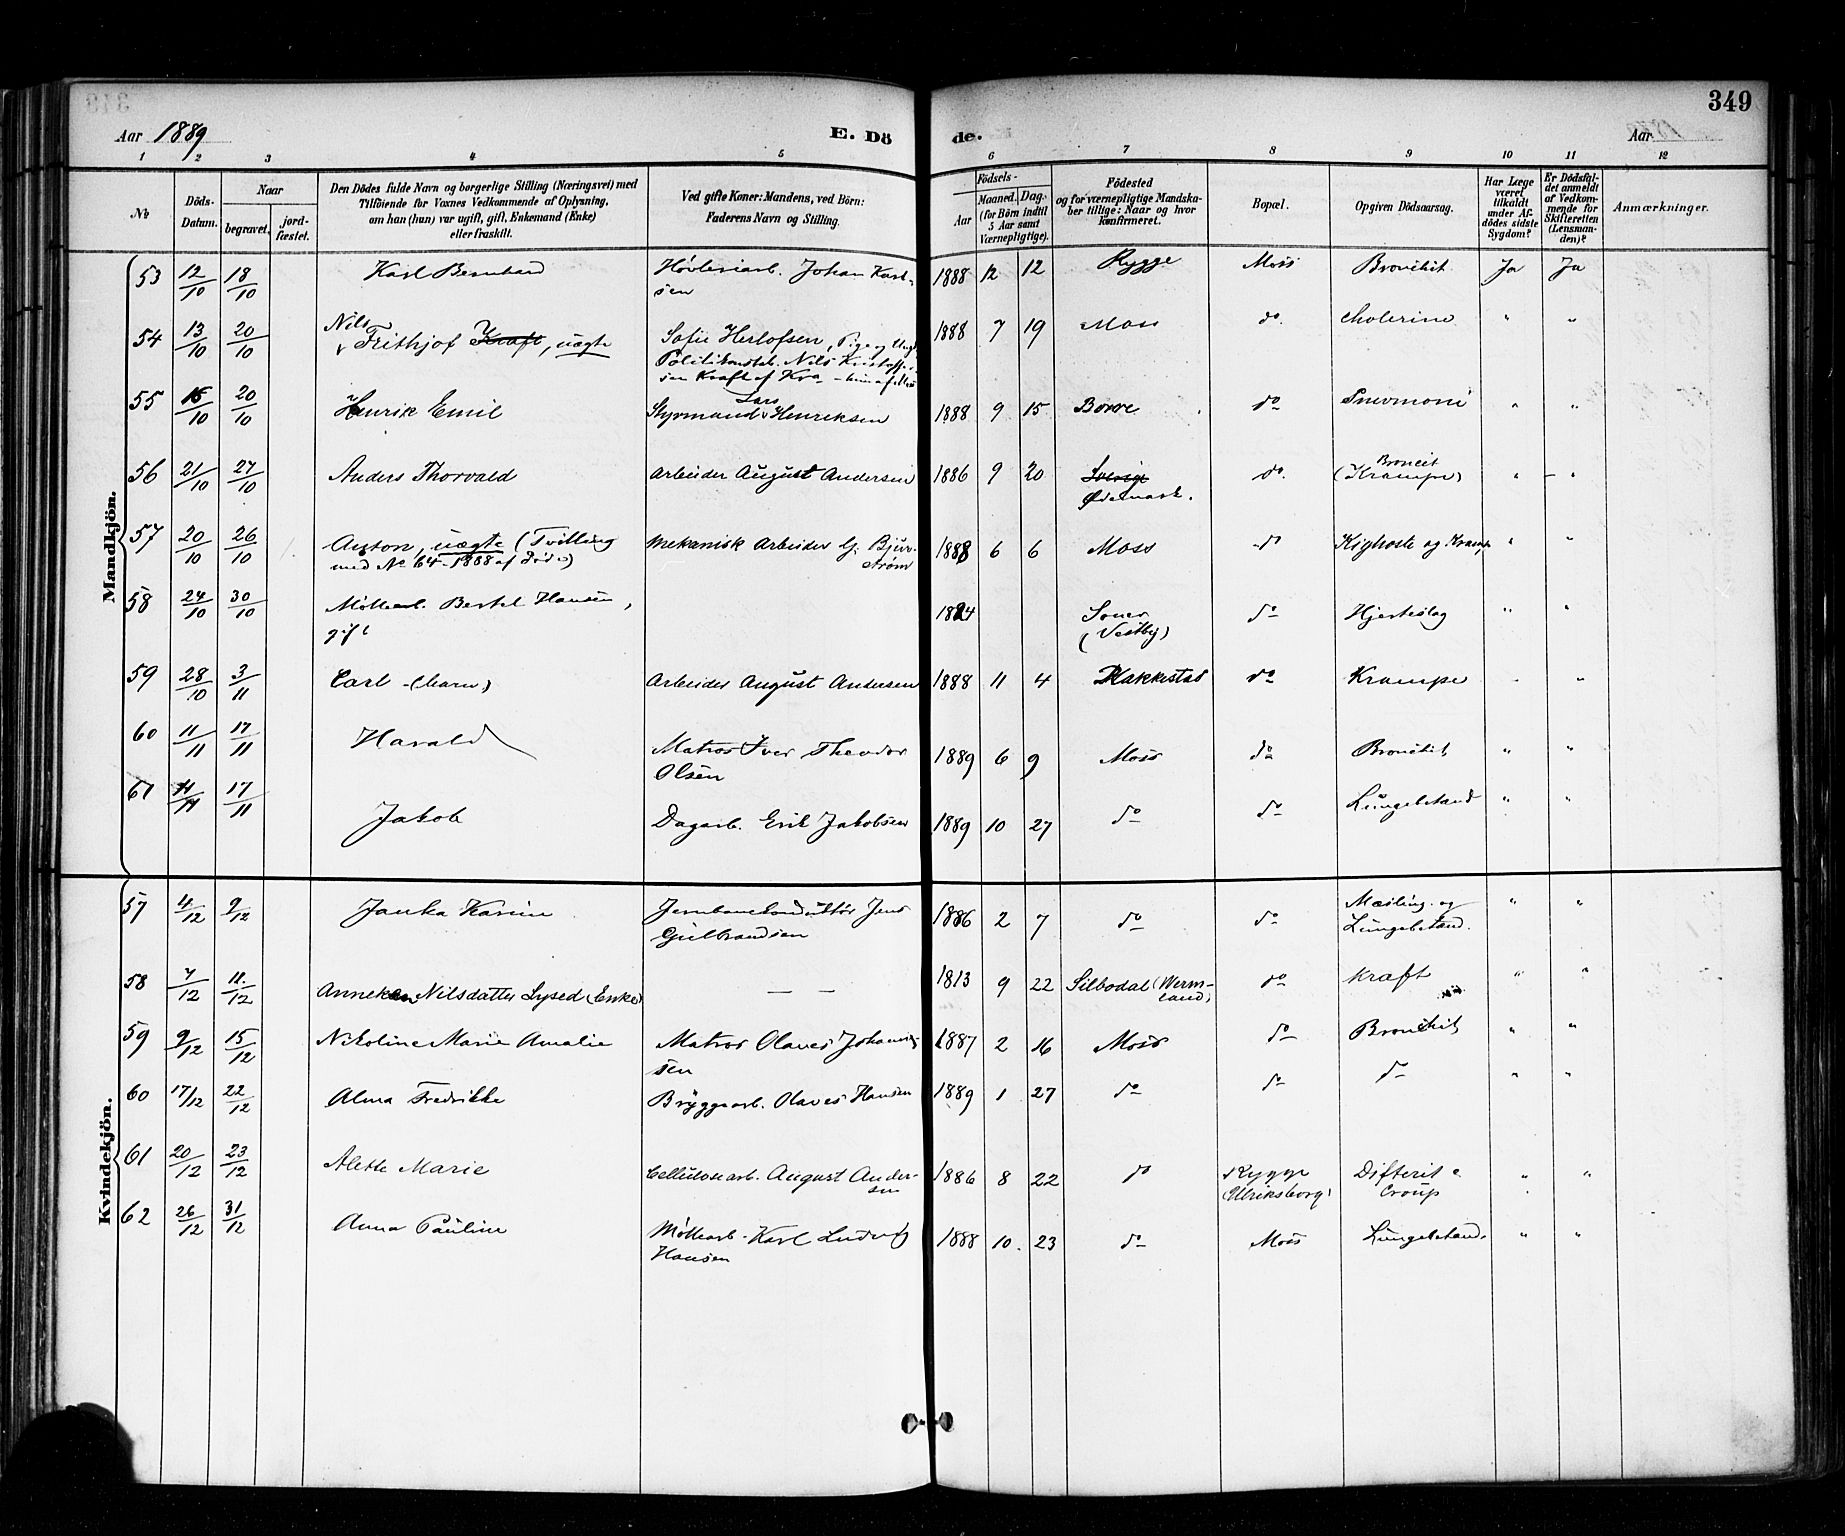 349
Aar 1889
E. Dö
de.
Aar
1 2 3 4 5 6 7 8 9 10 11 12
№
Döds-Datum.
Naar
begravet.
jord-fæstet.
Den Dödes fulde Navn og borgerlige Stilling (Næringsvei) med
Tilföiende for Voxnes Vedkommende af Oplysning,
om han (hun) var ugift, gift, Enkemand (Enke)
eller fraskilt.
Ved gifte Koner: Mandens, ved Börn:
Faderens Navn og Stilling.
Födsels-
Aar
Maaned. Dag.
(for Börn indtil
5 Aar samt
Værnepligtige).
Födested
og for værnepligtige Mandska-
ber tillige: Naar og hvor
konfirmeret.
Bopæl.
Opgiven Dödsaarsag.
Har Læge
været
tilkaldt
under Af-
dödes sidste
Sygdom?
Er Dödsfal-
det anmeldt
af Vedkom-
mende for
Skifteretten
(Lensman-
den)?
Anmærkninger.
Mandkjön.
53 12/10 18/10 Karl Bernhard Høvleriarb. Johan Karl-
sen 1888 12 12 Rygge Moss Bronchit Ja Ja
54 13/10 20/10 Nils
Frithjof Kraft, uægte Sofie Herlofsen, Pige og
Nils Kristoffer-
sen Kraft af Kra 1888 7 19 Moss do. Cholerine " "
55 15/10 20/10 Henrik Emil Styrmand Lars Henriksen 1888 9 15 Borre do Pnevmoni " "
56 21/10 27/10 Anders Thorvald Arbeider August Andersen 1886 9 20 Sverige
Ødemark. do. Broncit
(Krampe) " "
57 20/10 26/10 Anton, uægte (Tvilling
med No 64 - 1888 af døde) Mekanisk Arbeider G. Bjur-
strøm 1888 6 6 Moss do Kighoste og Krampe " "
58 24/10 30/10 Møllearb. Bertel Hansen,
gift 1824 Soner
(Vestby) do Hjerteslag " "
59 28/10 3/11 Carl (barn) Arbeider August Andersen 1888 11 4 Rakkestad do Krampe " "
60 11/11 17/11 Harald Matros Iver Theodor
Olsen 1889 6 9 Moss do Bronchit " "
61 11/11 17/11 Jakob Dagarb. Erik Jakobsen 1889 10 27 do do Lungebetænd " "
Kvindekjön.
57 4/12 9/12 Janka Karine Jernbanekonduktör Jens
Gulbrandsen 1886 2 7 do do Mæsling. og
Lungebetænd. " "
58 7/12 11/12 Anneken Nilsdatter Lysed (Enke) — — 1813 9 22 Silbodal (Werm-
land) do Kræft " "
59 9/12 15/12 Nikoline Marie Amalie Matros Olaves Johanne-
sen 1887 2 16 Moss do Bronchit " "
60 17/12 22/12 Alma Fredrikke Bryggearb. Olaves Hansen 1889 1 27 do do do " "
61 20/12 23/12 Alette Marie Cellulosearb. August Ander-
sen 1886 8 22 do Rygge
(Ulriksborg) Difterit
Croup " "
62 26/12 31/12 Anna Pauline Møllearb. Karl Ludvig
Hansen 1888 10 23 do Moss Lungebetænd. " "